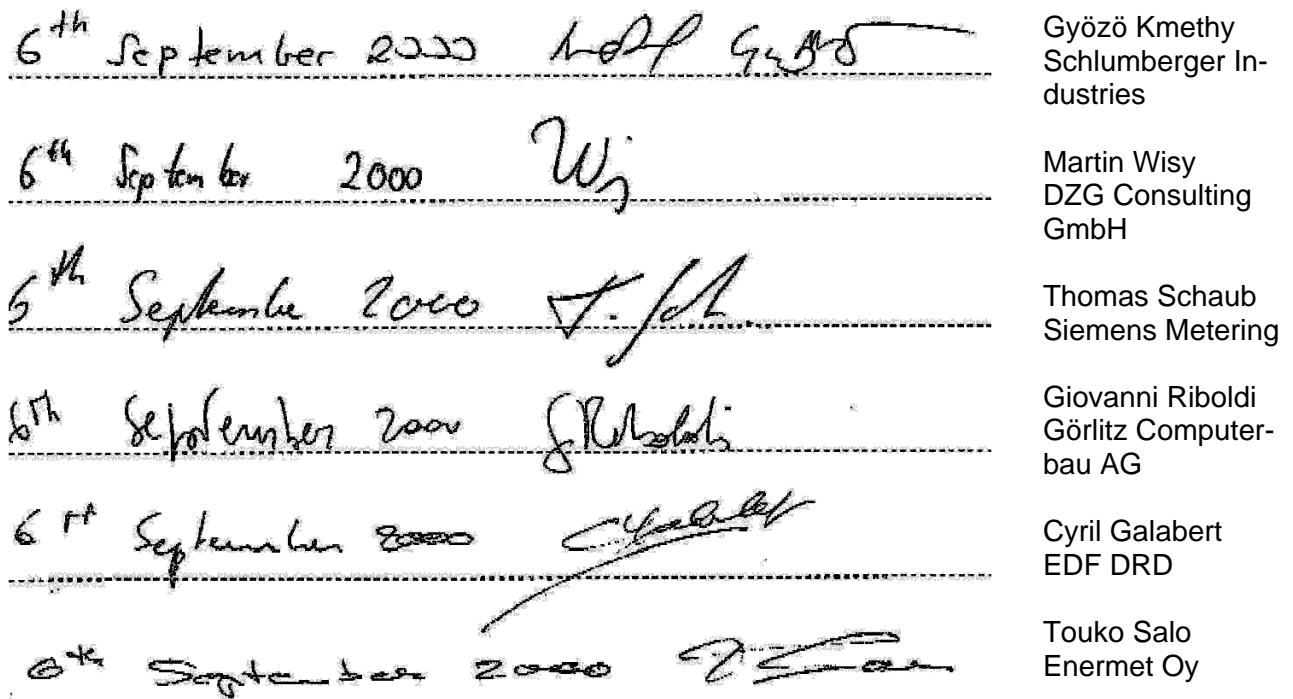 6th September 2000
Gyözö Kmethy
Schlumberger In-
dustries
6th September 2000 Wisy
Martin Wisy
DZG Consulting
GmbH
6th Septembe 2000 T. Sch
Thomas Schaub
Siemens Metering
6th September 2000 GRiboldi
Giovanni Riboldi
Görlitz Computer-
bau AG
6th September 2000 CGalabert
Cyril Galabert
EDF DRD
6th September 2000
Touko Salo
Enermet Oy